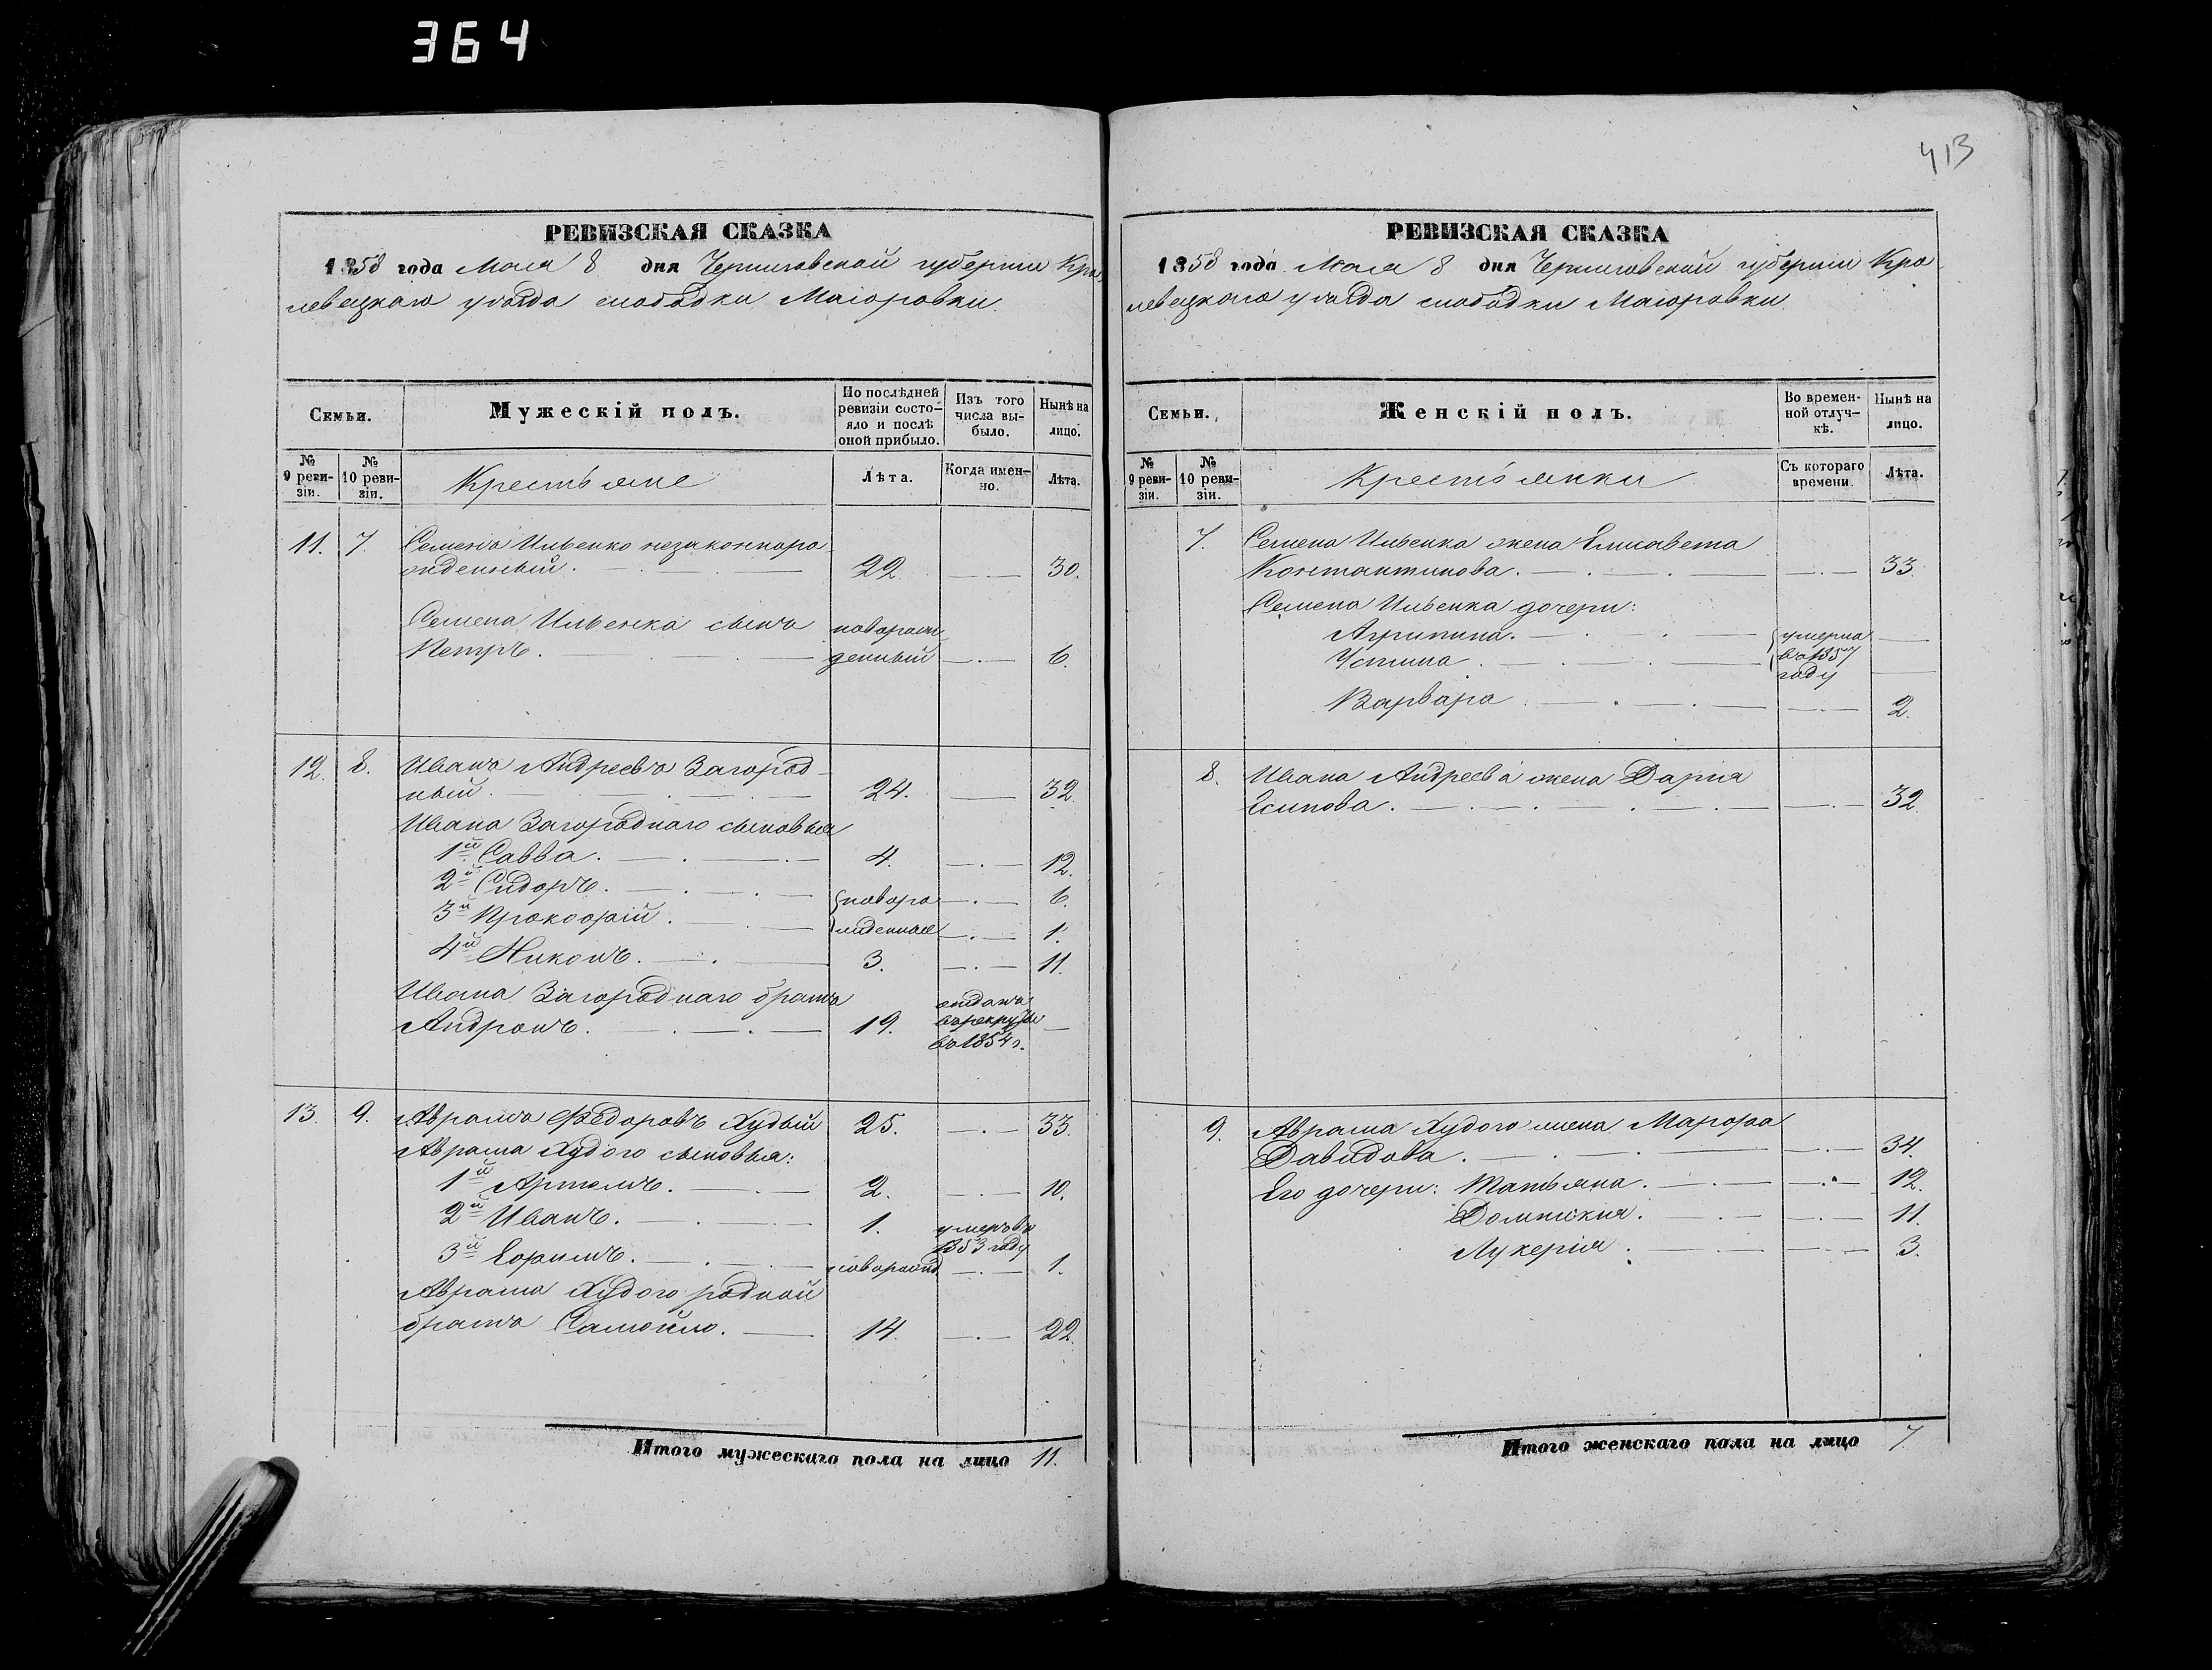 364
413
РЕВИЗСКАЯ СКАЗКА
1858 года Маія 8 дня Черниговской губерніи Кро
левецкаго уѣзда слободки Маіоровки.
Семьи.
Мужескій полъ.
По послѣдней ревизіи состояло и послѣ оной прибыло.
Изъ того числа выбыло.
Нынѣ на лицо.
№ 9 ревизіи.
№ 10 ревизіи.
Крестьяне
Лѣта.
Когда именно.
Лѣта.
11. 7. Семенъ Ильенко незаконноро
жденный. 22. 30.
Семена Ильенка сынъ новорож
Петръ. денный 6.
12. 8. Иванъ Андреевъ Загород
ный. 24. 32
Ивана Загороднаго сыновья
1й Савва. 4. 12.
2й Сидоръ. новоро 6.
3й Прокофій. жденные 1.
4й Никонъ. 3. 11.
Ивана Загороднаго братъ отданъ
Андронъ. 19. въ рекруты
въ 1854 г.
13. 9. Аврамъ Ѳедоровъ Худый 25. 33.
Аврама Худого сыновья:
1й Артемъ. 2. 10.
2й Иванъ. 1. умеръ въ
1853 году
3й Ефимъ. новорожд 1.
Аврама Худого родной
братъ Самойло. 14. 22.
Итого мужескаго пола на лицо 11.
РЕВИЗСКАЯ СКАЗКА
1858 года Маія 8 дня Черниговской губерніи Кро
левецкаго уѣзда слободки Маіоровки.
Семьи.
Женскій полъ.
Во временной отлучкѣ.
Нынѣ на лицо.
№ 9 ревизіи.
№ 10 ревизіи.
Крестьянки
Съ котораго времени.
Лѣта.
7. Семена Ильенка жена Елисавета
Константинова. 33.
Семена Ильенка дочери:
Агрипина. умерла
Устина. въ 1857
году
Варвара. 2.
8. Ивана Андреева жена Дарія
Есипова. 32
9. Аврама Худого жена Марфа
Давидова. 34.
Его дочери: Татьяна. 12.
Домникия. 11.
Лукерія. 3.
Итого женскаго пола на лицо 7